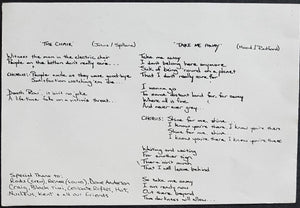 "THE CHAIR"
Witness the man in the electric chair
People on the button don't really care...
CHORUS: People smile as they wave goodbye
Satisfaction watching 'em die
Death Row is no joke
A lifetime falls on a victim's throat..
Special Thanks to:
Rods (crew), (sound), Dave Anderson
Craig, Black Tim, Rupert, Matt,
Kent & all our friends
"TAKE ME AWAY"
Take me away
I don't belong here anymore
Sick of being 'round on a planet
That I don't really care for
I wanna go
To some distant land far, far away
Where all is fine
And never ever grey
CHORUS: Shine for me, shine
I know you're there I know you're there
Shine for me, shine
I know you're there I know you're there
Waiting and waiting
For another sign
There isn't much
That I will leave behind
So take me away
I am ready now
Out there beyond
The darkness will allow...